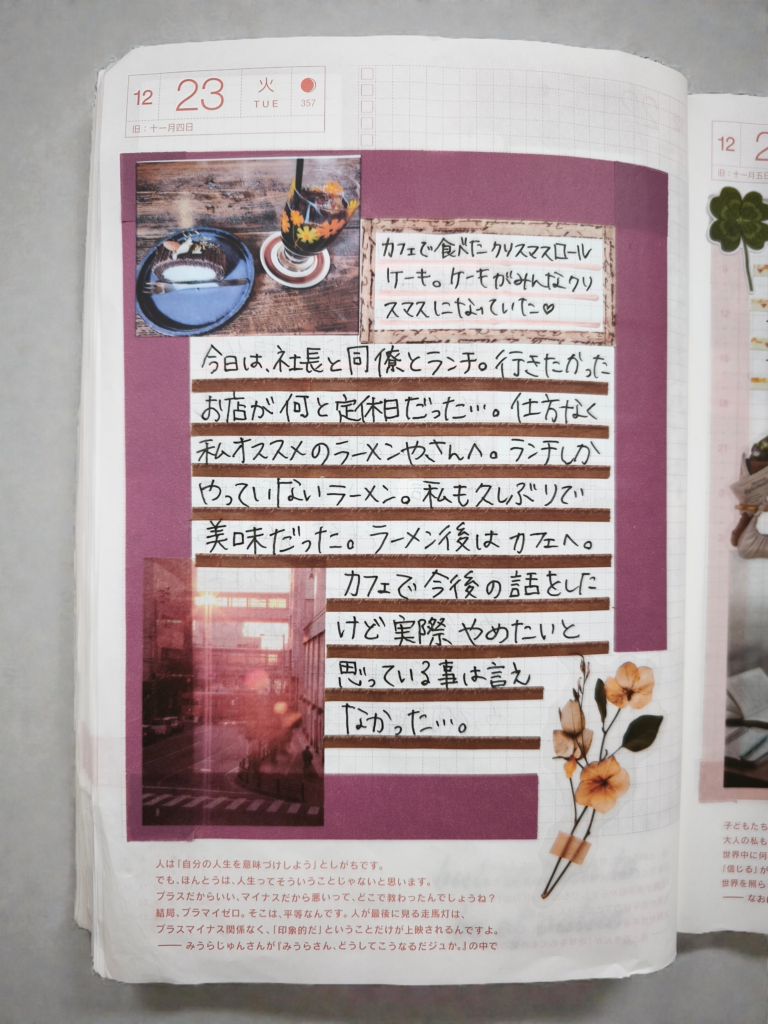 12 23 火
TUE 357
旧：十一月四日
カフェで食べたクリスマスロール
ケーキ。ケーキがみんなクリ
スマスになっていた♡
今日は、社長と同僚とランチ。行きたかった
お店が何と定休日だった…。仕方なく
私オススメのラーメンやさんへ。ランチしか
やっていないラーメン。私も久しぶりで
美味だった。ラーメン後はカフェへ。
カフェで今後の話をした
けど実際やめたいと
思っている事は言え
なかった…。
人は「自分の人生を意味づけしよう」としがちです。
でも、ほんとうは、人生ってそういうことじゃないと思います。
プラスだからいい、マイナスだから悪いって、どこで教わったんでしょうね？
結局、プラマイゼロ。そこは、平等なんです。人が最後に見る走馬灯は、
プラスマイナス関係なく、「印象的だ」ということだけが上映されるんですよ。
── みうらじゅんさんが『みうらさん、どうしてこうなるだジュか。』の中で
12 2
旧：十一月五日
子どもたち
大人の私も
世界中に何
「信じる」が
世界を照ら
── なお